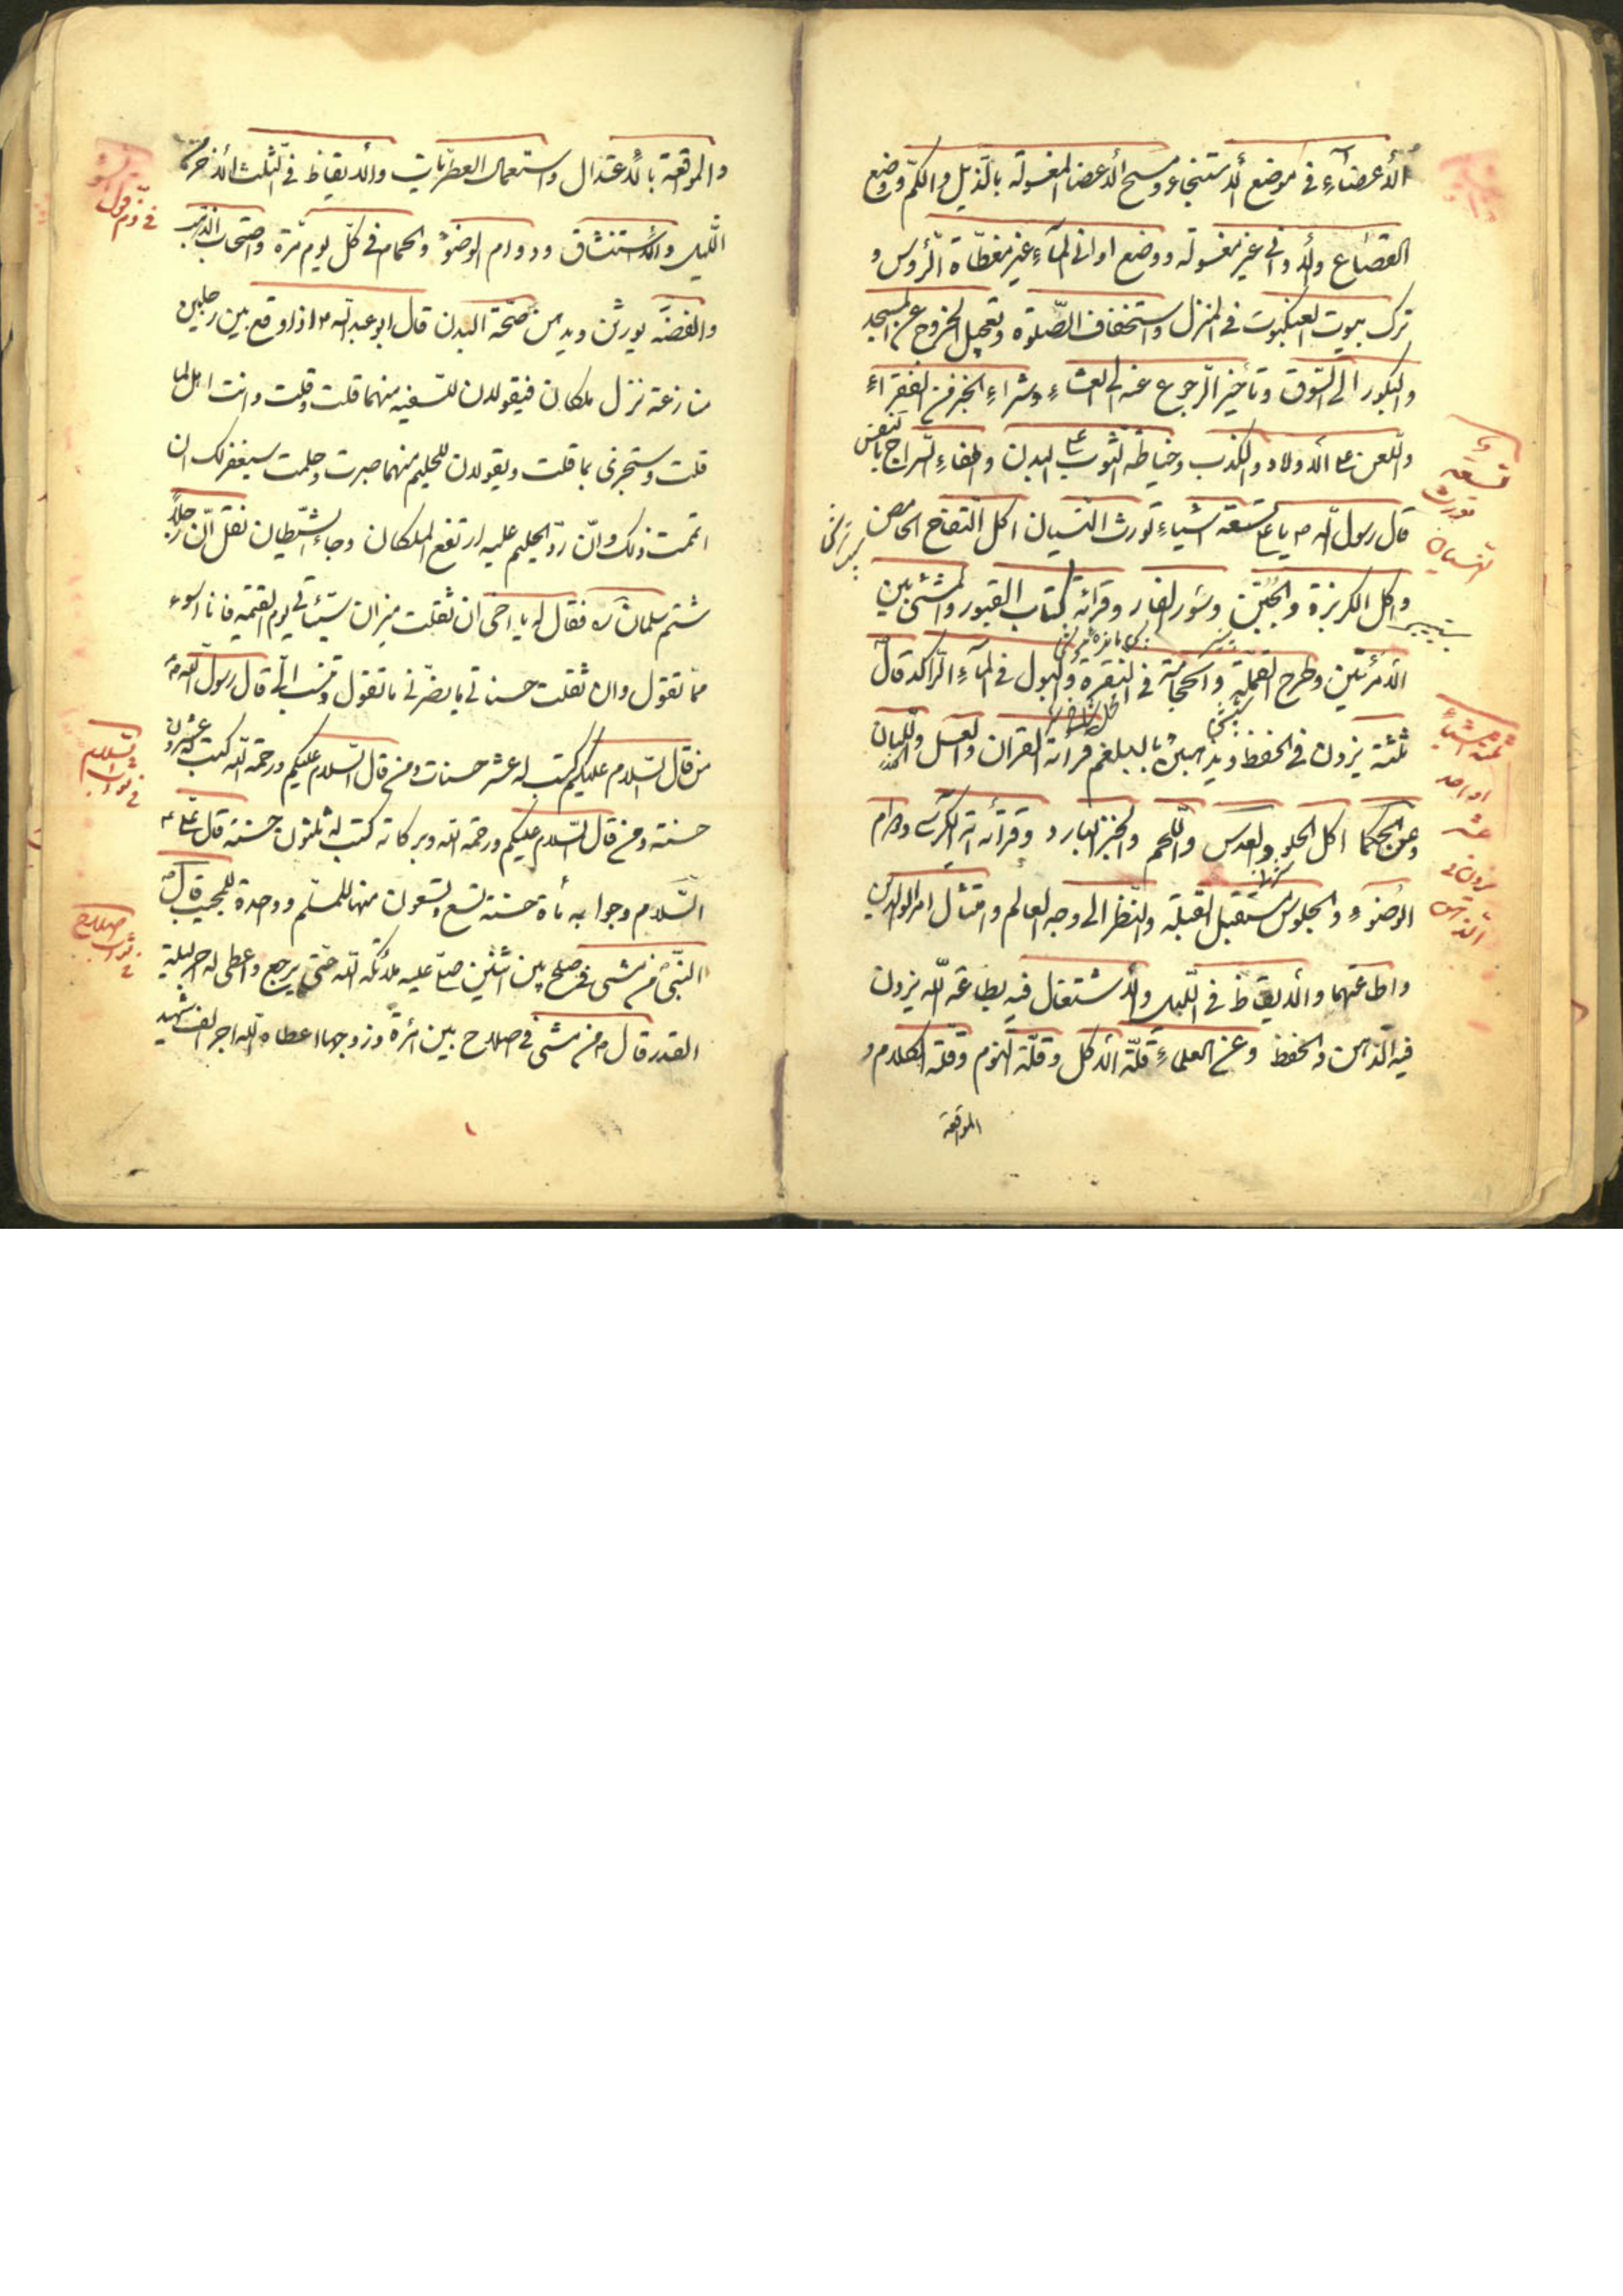 الأعضاء في موضع الاستنجاء ومسح الاعضا المغسولة بالذيل والكم ووضع
القصاع والاواني غير مغسولة ووضع اواني الماء غير مغطاة الرؤس و
ترك بيوت العنكبوت في المنزل واستخفاف الصلوة وتعجيل الخروج عن المسجد
والبكور الى السوق وتأخير الرجوع عنه الى العشاء وشراء الخبز من الفقراء
واللعن على الاولاد والكذب وخياطة الثوب على البدن واطفاء السراج بالنفس
قال رسول الله ص يا علي تسعة اشياء تورث النسيان اكل التفاح الحامض
واكل الكزبرة والجبن وسور الفار وقرائة كتاب القبور والمشي بين
الامرئتين وطرح القملة والحجامة في النقرة والبول في الماء الراكد قال
ثلثة يزدن في الحفظ ويذهبن بالبلغم قرائة القران والعسل واللبان
وعن الحكما اكل الحلو والعدس واللحم والخبز البارد وقرائة اية الكرسي ودوام
الوضوء والجلوس مستقبل القبلة والنظر الى وجه العالم وامتثال امر الوالدين
واطاعتهما والايقاظ في الليل والاشتغال فيه بطاعة الله يزدن
فيه الذهن والحفظ وعن العلماء قلة الاكل وقلة النوم وقلة الكلام و
المواقعة
تسعة
تورث
النسيان
ثلثة اشياء
او احد
عشر
يزدن في
الذهن
والمواقعة بالاعتدال واستعمال العطريات والايقاظ في الثلث الاخر من
الليل والاستنشاق ودوام الوضوء والحمام في كل يوم مرة واصتحاب الذهب
والفضة يورثن ويدمن صحة البدن قال ابو عبد الله ع اذا وقع بين رجلين
منازعة نزل ملكان فيقولان للسفيه منهما قلت وقلت وانت اهل لما
قلت وستجزى بما قلت ويقولان للحليم منهما صبرت وحلمت سيغفر لك ان
اتممت ذلك وان رد الحليم عليه ارتفع الملكان وجاء الشيطان نقل ان رجلا
شتم سلمان ره فقال له يا اخي ان ثقلت ميزان سيئاتي يوم القيمة فانا اسوء
مما تقول وان ثقلت حسناتي ما يضرني ما تقول وتنسب الي قال رسول الله ص
من قال السلام عليكم كتب له عشر حسنات ومن قال السلام عليكم ورحمة الله كتب له عشرون
حسنة ومن قال السلام عليكم ورحمة الله وبركاته كتب له ثلثون حسنة قال علي ع
السلام وجوابه مأة حسنة تسع وتسعون منها للمسلم ووحدة للمجيب قال
النبي ص من مشى في صلح بين اثنين صلى عليه ملائكة الله حتى يرجع واعطى له اجر ليلة
القدر قال ص من مشى في اصلاح بين امرئة وزوجها اعطاه الله اجر الف شهيد
السلام
ثواب
في
اصلاح
ثواب
في